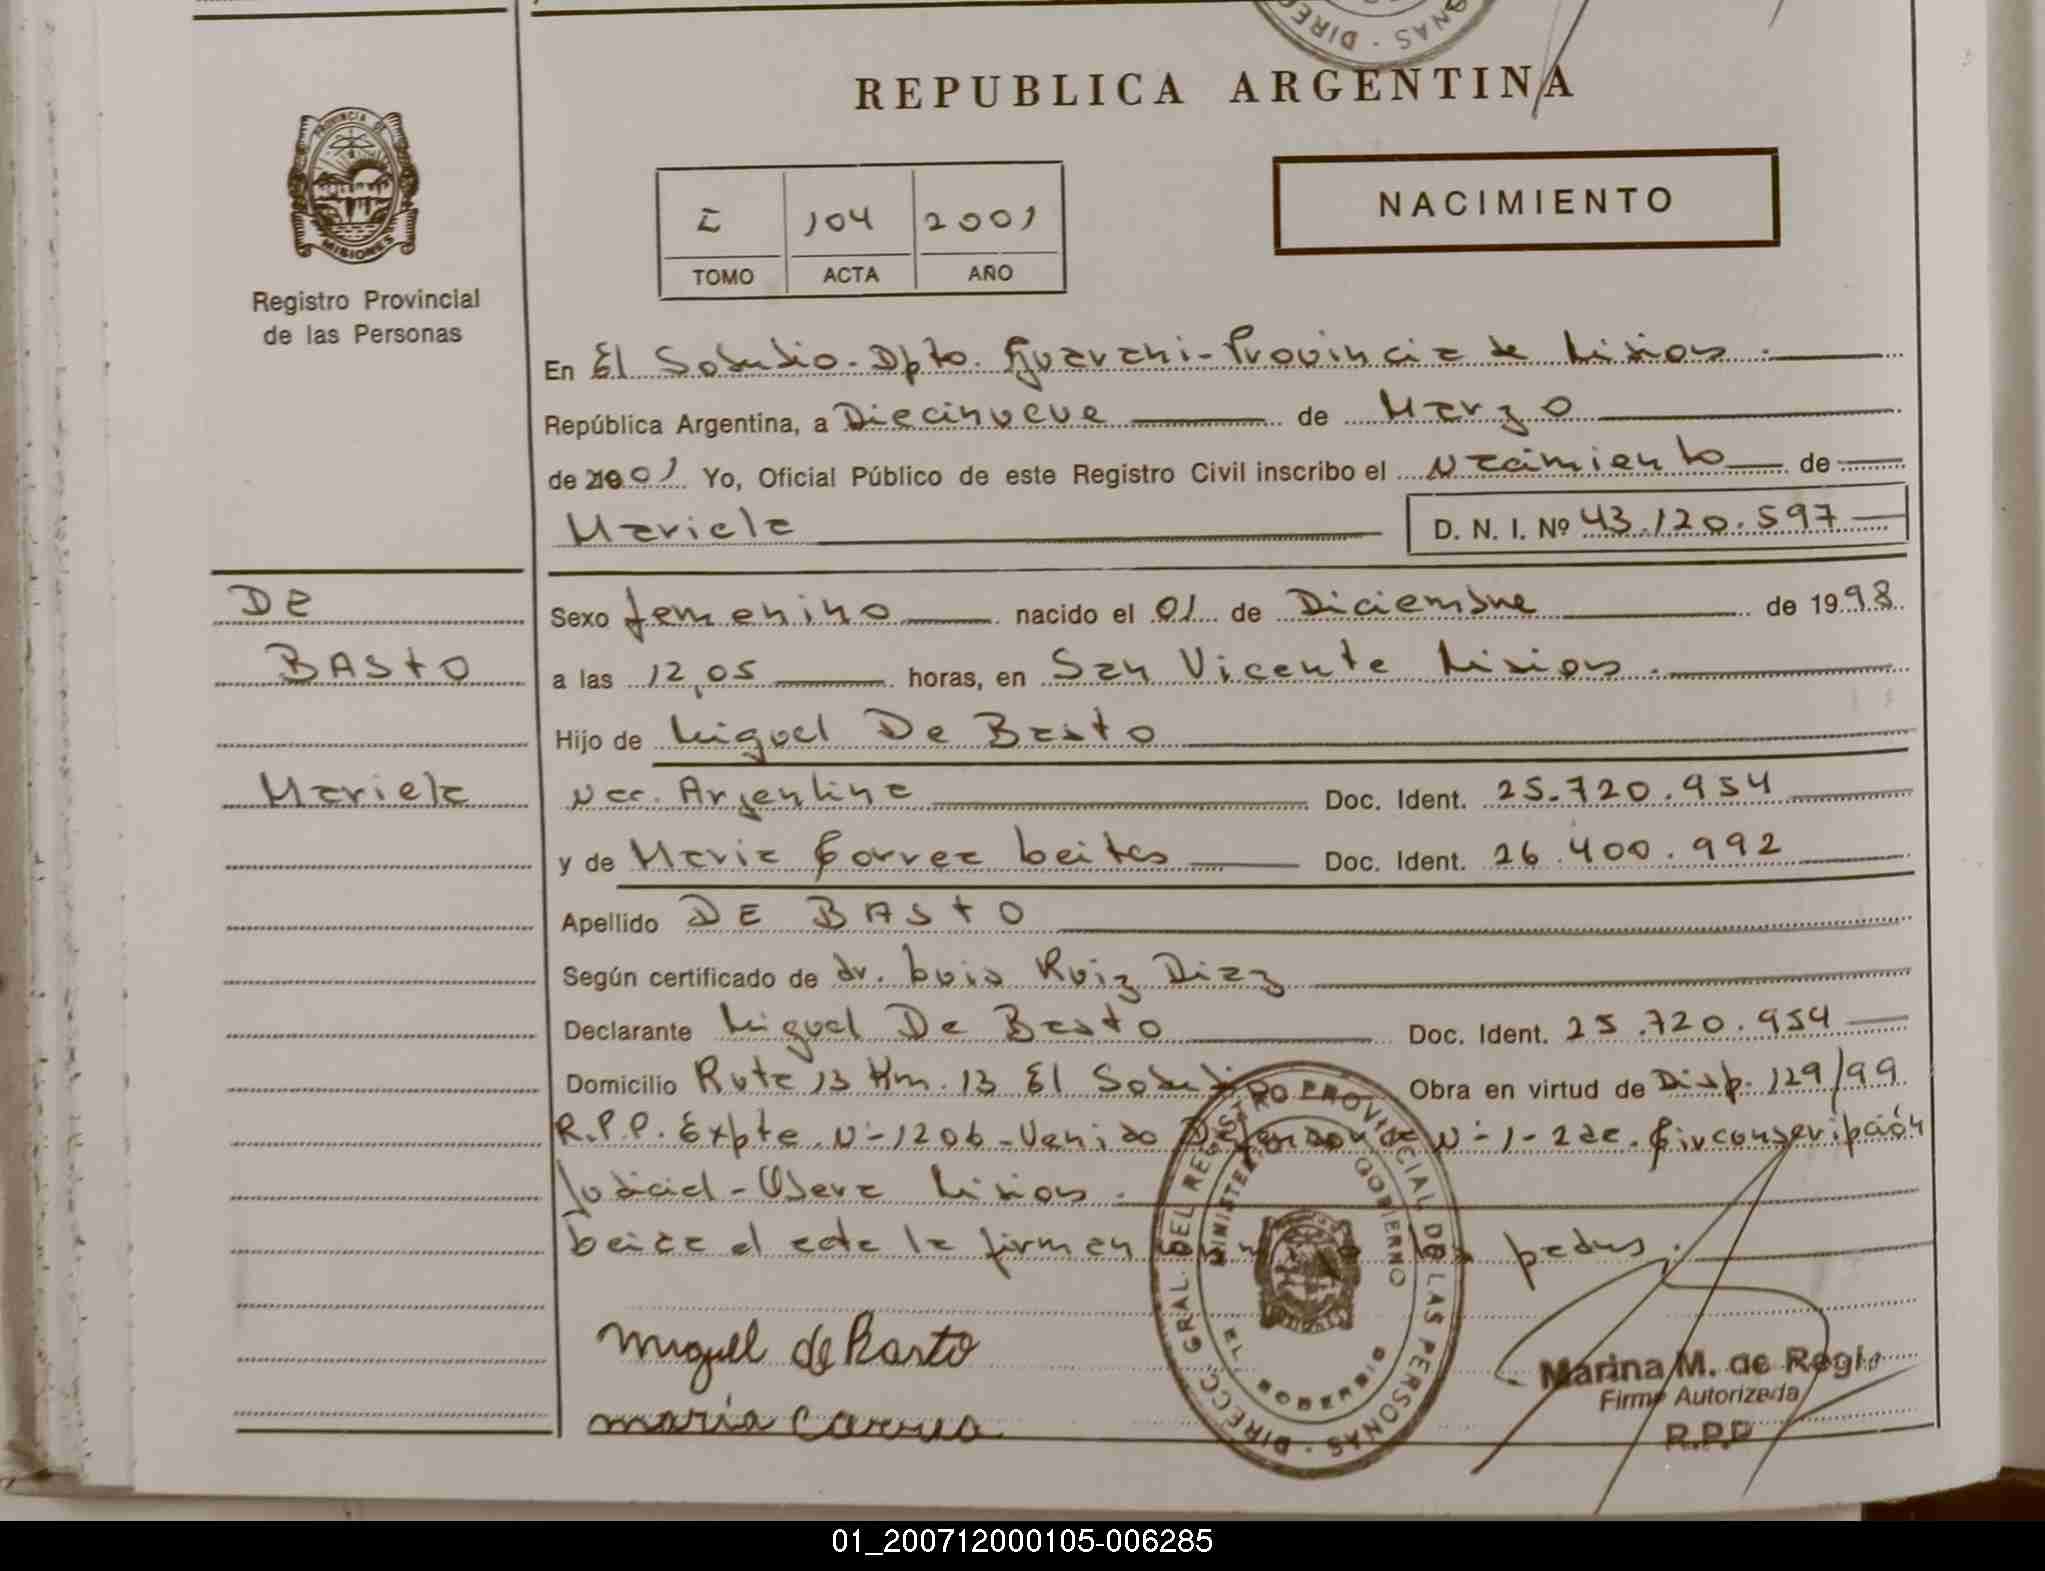 REPUBLICA ARGENTINA
NACIMIENTO
PROVINCIA DE
MISIONES
Registro Provincial
de las Personas
I 104 2001
TOMO ACTA AÑO
En El Soberbio - Dpto. Guarani - Provincia de Misiones.
República Argentina, a Diecinueve de Marzo
de 2001 Yo, Oficial Público de este Registro Civil inscribo el nacimiento de
Mariela D. N. I. Nº 43.120.597
DE
BASTO
Mariela
Sexo femenino nacido el 01 de Diciembre de 1998
a las 12,05 horas, en San Vicente Misiones.
Hijo de Miguel De Basto
Nac. Argentina Doc. Ident. 25.720.954
y de Maria Correa Leites Doc. Ident. 26.400.992
Apellido DE BASTO
Según certificado de dr. Luis Ruiz Diaz
Declarante Miguel De Basto Doc. Ident. 25.720.954
Domicilio Ruta 13 Km. 13 El Soberbio Obra en virtud de Disp. 129/99
R.P.P. Expte. Nº 1206 - Venido Defensoria Nº 1 - 2da. Circonscripción
Judicial - Obera Misiones.
Leida el acta la firman padres.
Miguel de Basto
Maria Correa
DIRECC. GRAL. DEL REGISTRO PROVINCIAL DE LAS PERSONAS
MINISTERIO GOBIERNO
EL SOBERBIO
Marina M. de Regis
Firma Autorizada
R.P.P
01_200712000105-006285